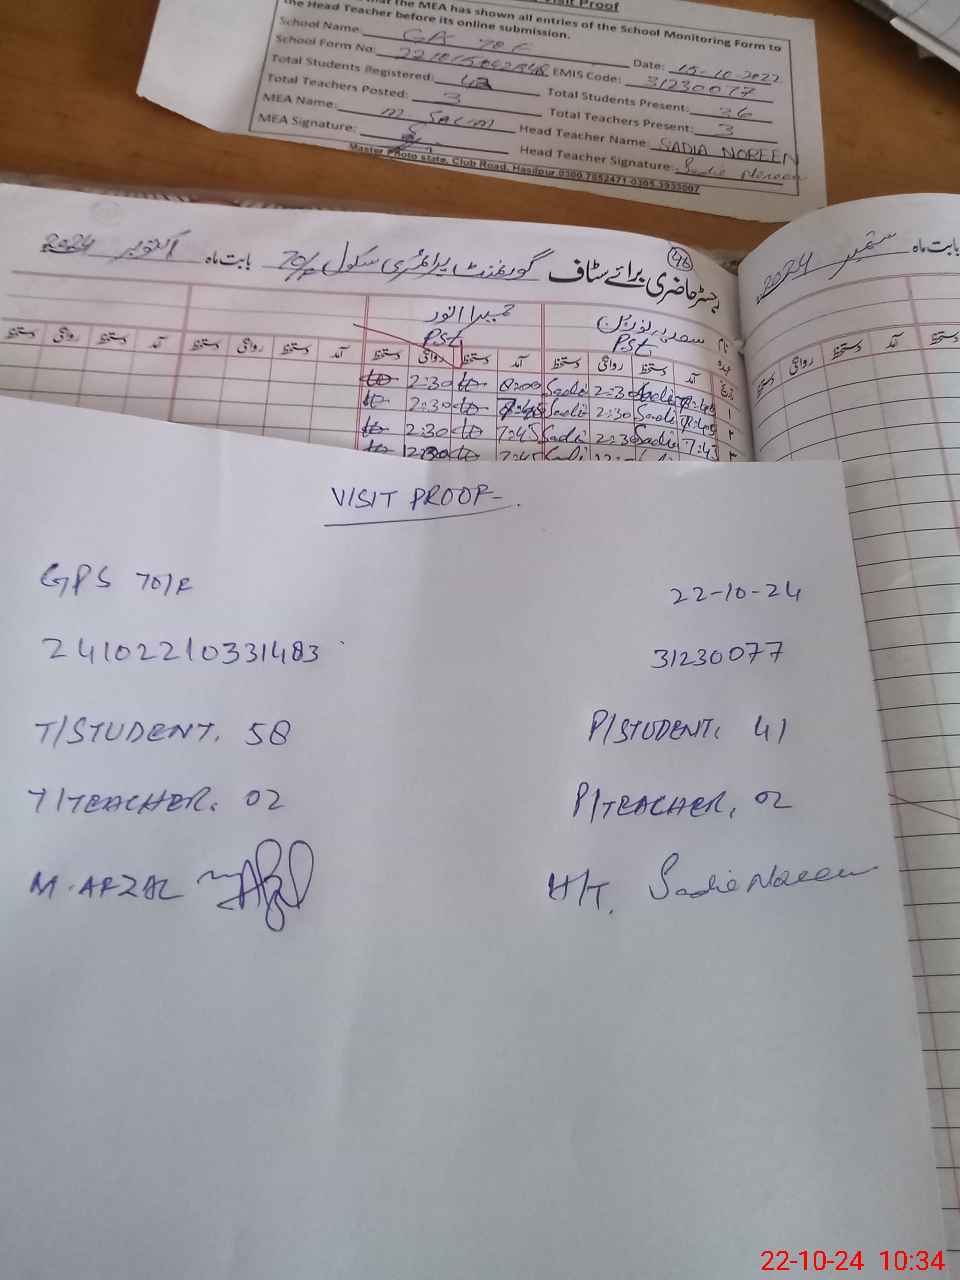 Visit Proof
that the MEA has shown all entries of the School Monitoring Form to
the Head Teacher before its online submission.
School Name: Date: 15-10-2022
School Form No: EMIS Code: 31230077
Total Students Registered: 42 Total Students Present: 36
Total Teachers Posted: 3 Total Teachers Present: 3
MEA Name: M Salim Head Teacher Name: SADIA NOREEN
MEA Signature: Head Teacher Signature: Sadia Noreen
Master Photo state, Club Road, Hasilpur 0300 7852471 0305 3933007
46
رجسٹر حاضری برائے سٹاف گورنمنٹ پرائمری سکول 70/F بابت ماہ اکتوبر 2024
بابت ماہ ستمبر 2024
نام سعدیہ نورین حمیرا انور
عہدہ PST PST
تاریخ آمد دستخط روانگی دستخط آمد دستخط روانگی دستخط آمد دستخط روانگی دستخط آمد دستخط روانگی دستخط
دستخط روانگی دستخط
۱ Sadi 2:30 Sadi 8:00 2:30
۲ Sadi 2:30 Sadi 2:30
۳ 7:45 Sadi 2:30 Sadi 7:45 2:30
7:45 2:30
VISIT PROOF
GPS 70/F 22-10-24
24102210331483 31230077
T/STUDENT. 58 P/STUDENT. 41
T/TEACHER. 02 P/TEACHER. 02
M. AFZAL H/T. Sadia Noreen
22-10-24 10:34